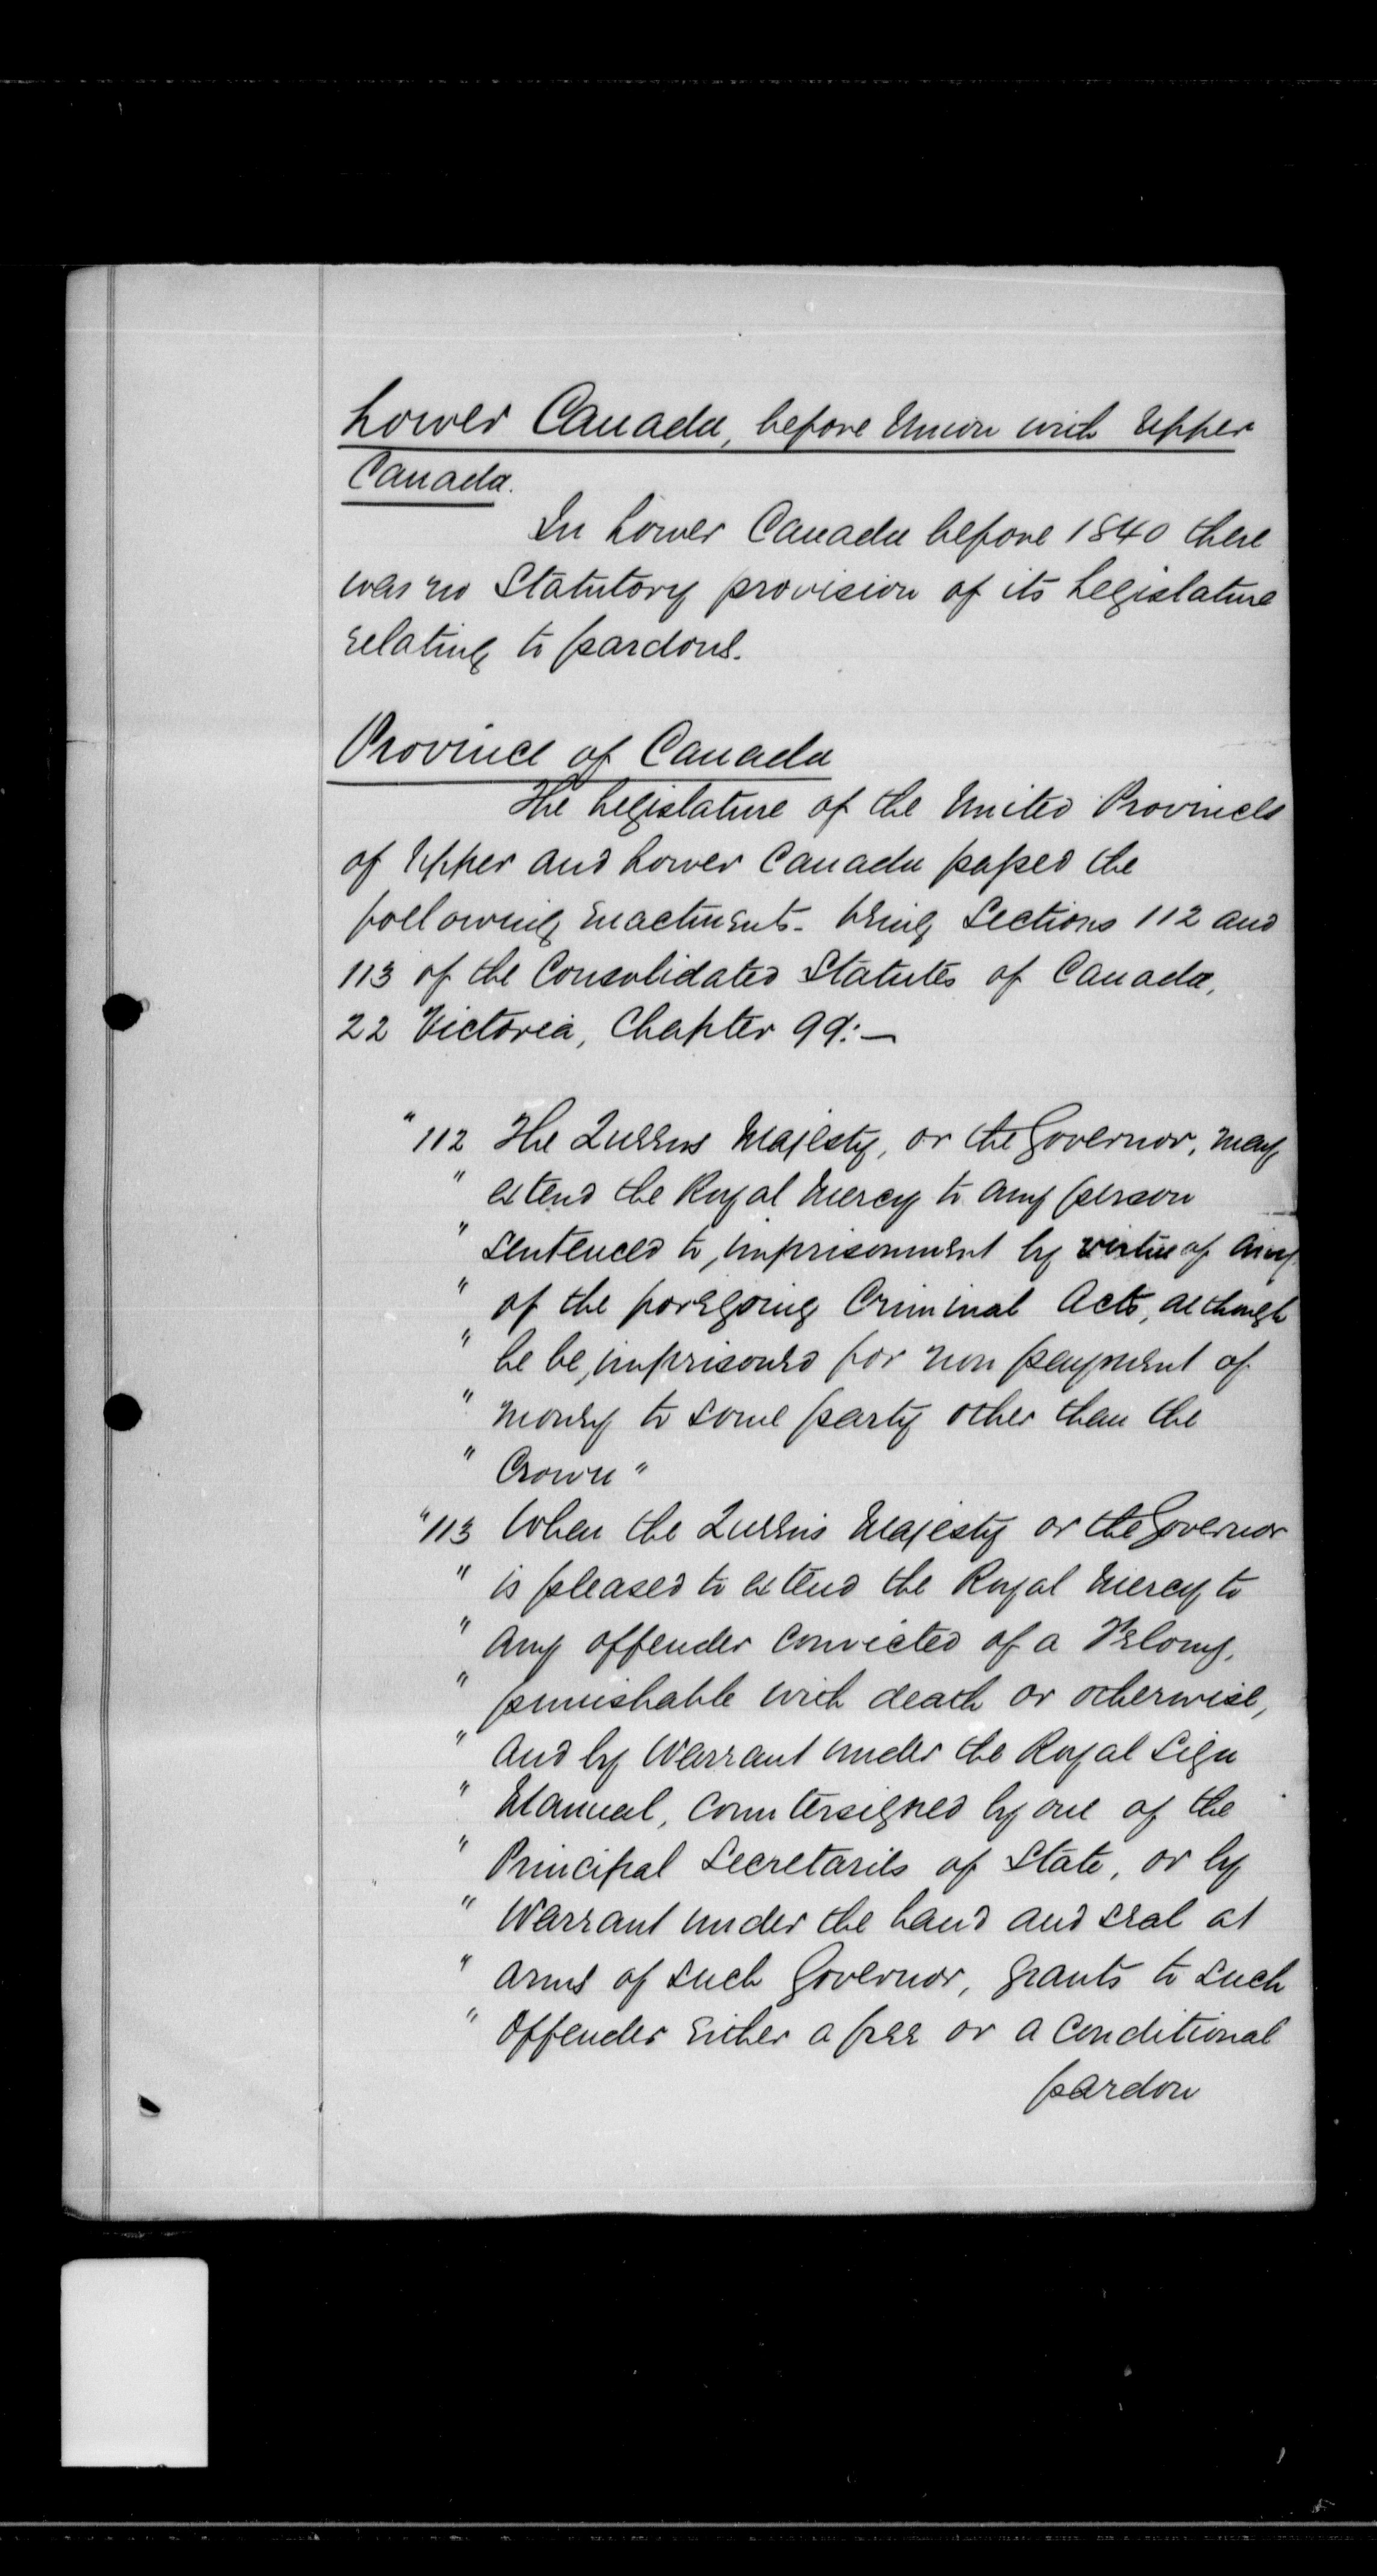 Lower Canada, before Union with Upper
Canada.
In Lower Canada before 1840 there
was no Statutory provision of its Legislature
relating to pardons.
Province of Canada
The Legislature of the United Provinces
of Upper and Lower Canada passed the
following enactments. being Sections 112 and
113 of the Consolidated Statutes of Canada,
22 Victoria, Chapter 99:—
"112 The Queens Majesty, or the Governor, may
" extend the Royal Mercy to any person
" sentenced to, imprisonment by virtue of any
" of the foregoing Criminal Acts, although
" he be, imprisoned for non payment of
" money to some party other than the
" Crown"
"113 When the Queen's Majesty or the Governor
" is pleased to extend the Royal Mercy to
" any offender convicted of a Felony,
" punishable with death or otherwise,
" and by Warrant under the Royal Sign
" Manual, countersigned by one of the
" Principal Secretaries of State, or by
" Warrant under the hand and seal at
" arms of such Governor, grants to such
" Offender either a free or a conditional
pardon